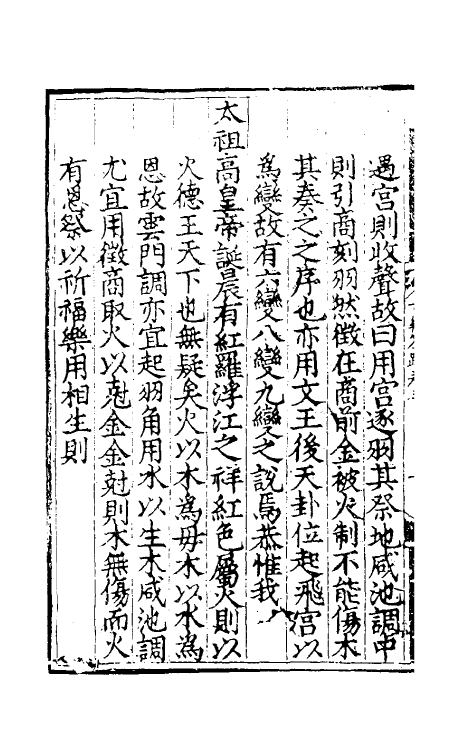 遇宫則收聲故曰用宫逐羽其祭地咸池調中
則引商刻羽然徵在商前金被火制不能傷木
其奏之之序也亦用文王後天卦位起飛宫以
爲變故有六變八變九變之說焉恭惟我
太祖高皇帝誕晨有紅羅浮江之祥紅色屬火則以
火德王天下也無疑矣火以木爲母木以水爲
恩故雲門調亦宜起羽角用水以生木咸池調
尤宜用徵商取火以尅金金尅則木無傷而火
有恩祭以祈福樂用相生則